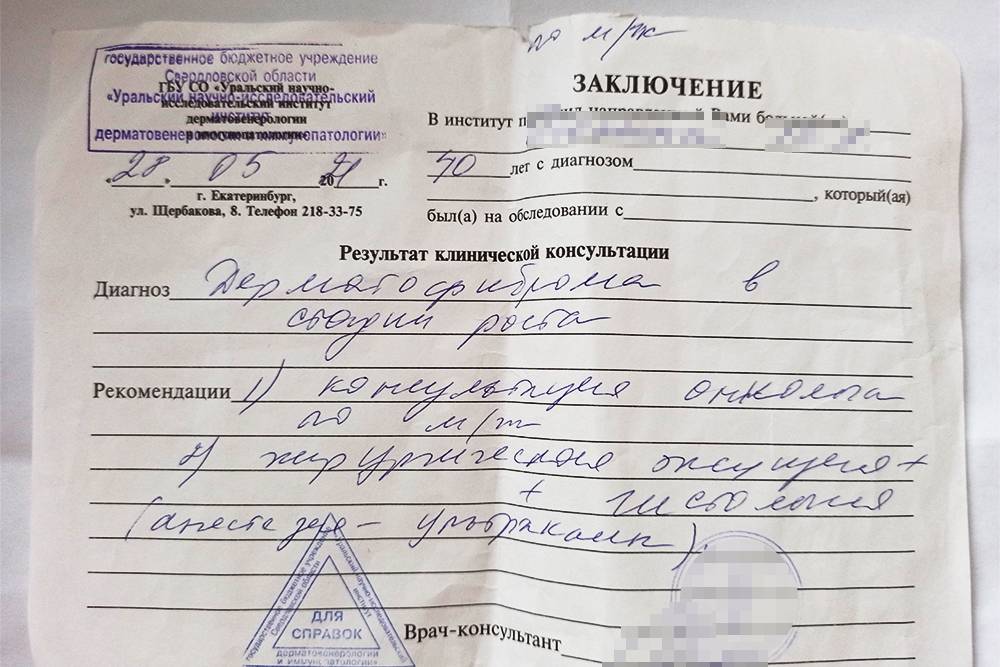 по м/ж
государственное бюджетное учреждение
Свердловской области
«Уральский научно-исследовательский
институт
дерматовенерологии и иммунопатологии»
ГБУ СО «Уральский научно-
исследовательский институт
дерматовенерологии
и иммунопатологии»
«28» 05 2021 г.
г. Екатеринбург,
ул. Щербакова, 8. Телефон 218-33-75
ЗАКЛЮЧЕНИЕ
В институт направленный Вами
40 лет с диагнозом
, который(ая)
был(а) на обследовании с
Результат клинической консультации
Диагноз Дерматофиброма в
стадии роста
Рекомендации 1) консультация онколога
по м/ж
2) хирургическая эксцизия +
+ гистология
(анестезия – ультракаин).
государственное бюджетное учреждение
Свердловской области
«Уральский научно-исследовательский
институт
ДЛЯ
СПРАВОК
дерматовенерологии
и иммунопатологии»
Врач-консультант